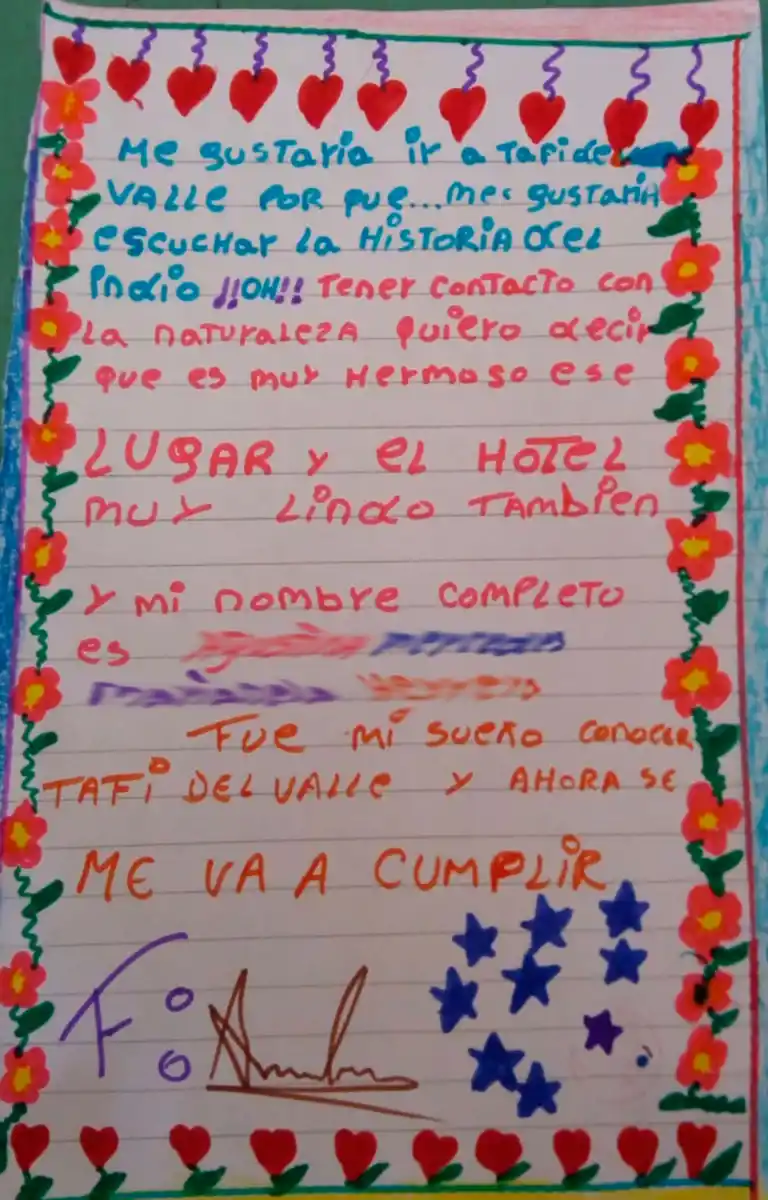 Me gustaria ir a Tafi de
VALLe POR que... me gustaria
escucHar La HiSTORiA deL
indio !!OH!! Tener contacto con
La naturaLeza quiero decir
que es muy Hermoso ese
LUGAR y eL HOTeL
muy Lindo TAmbien
y mi nombre compLeTo
es
Fue mi sueño conocer
TAFi DEL VALLe y AHORA SE
ME VA A CUMPLiR
F: